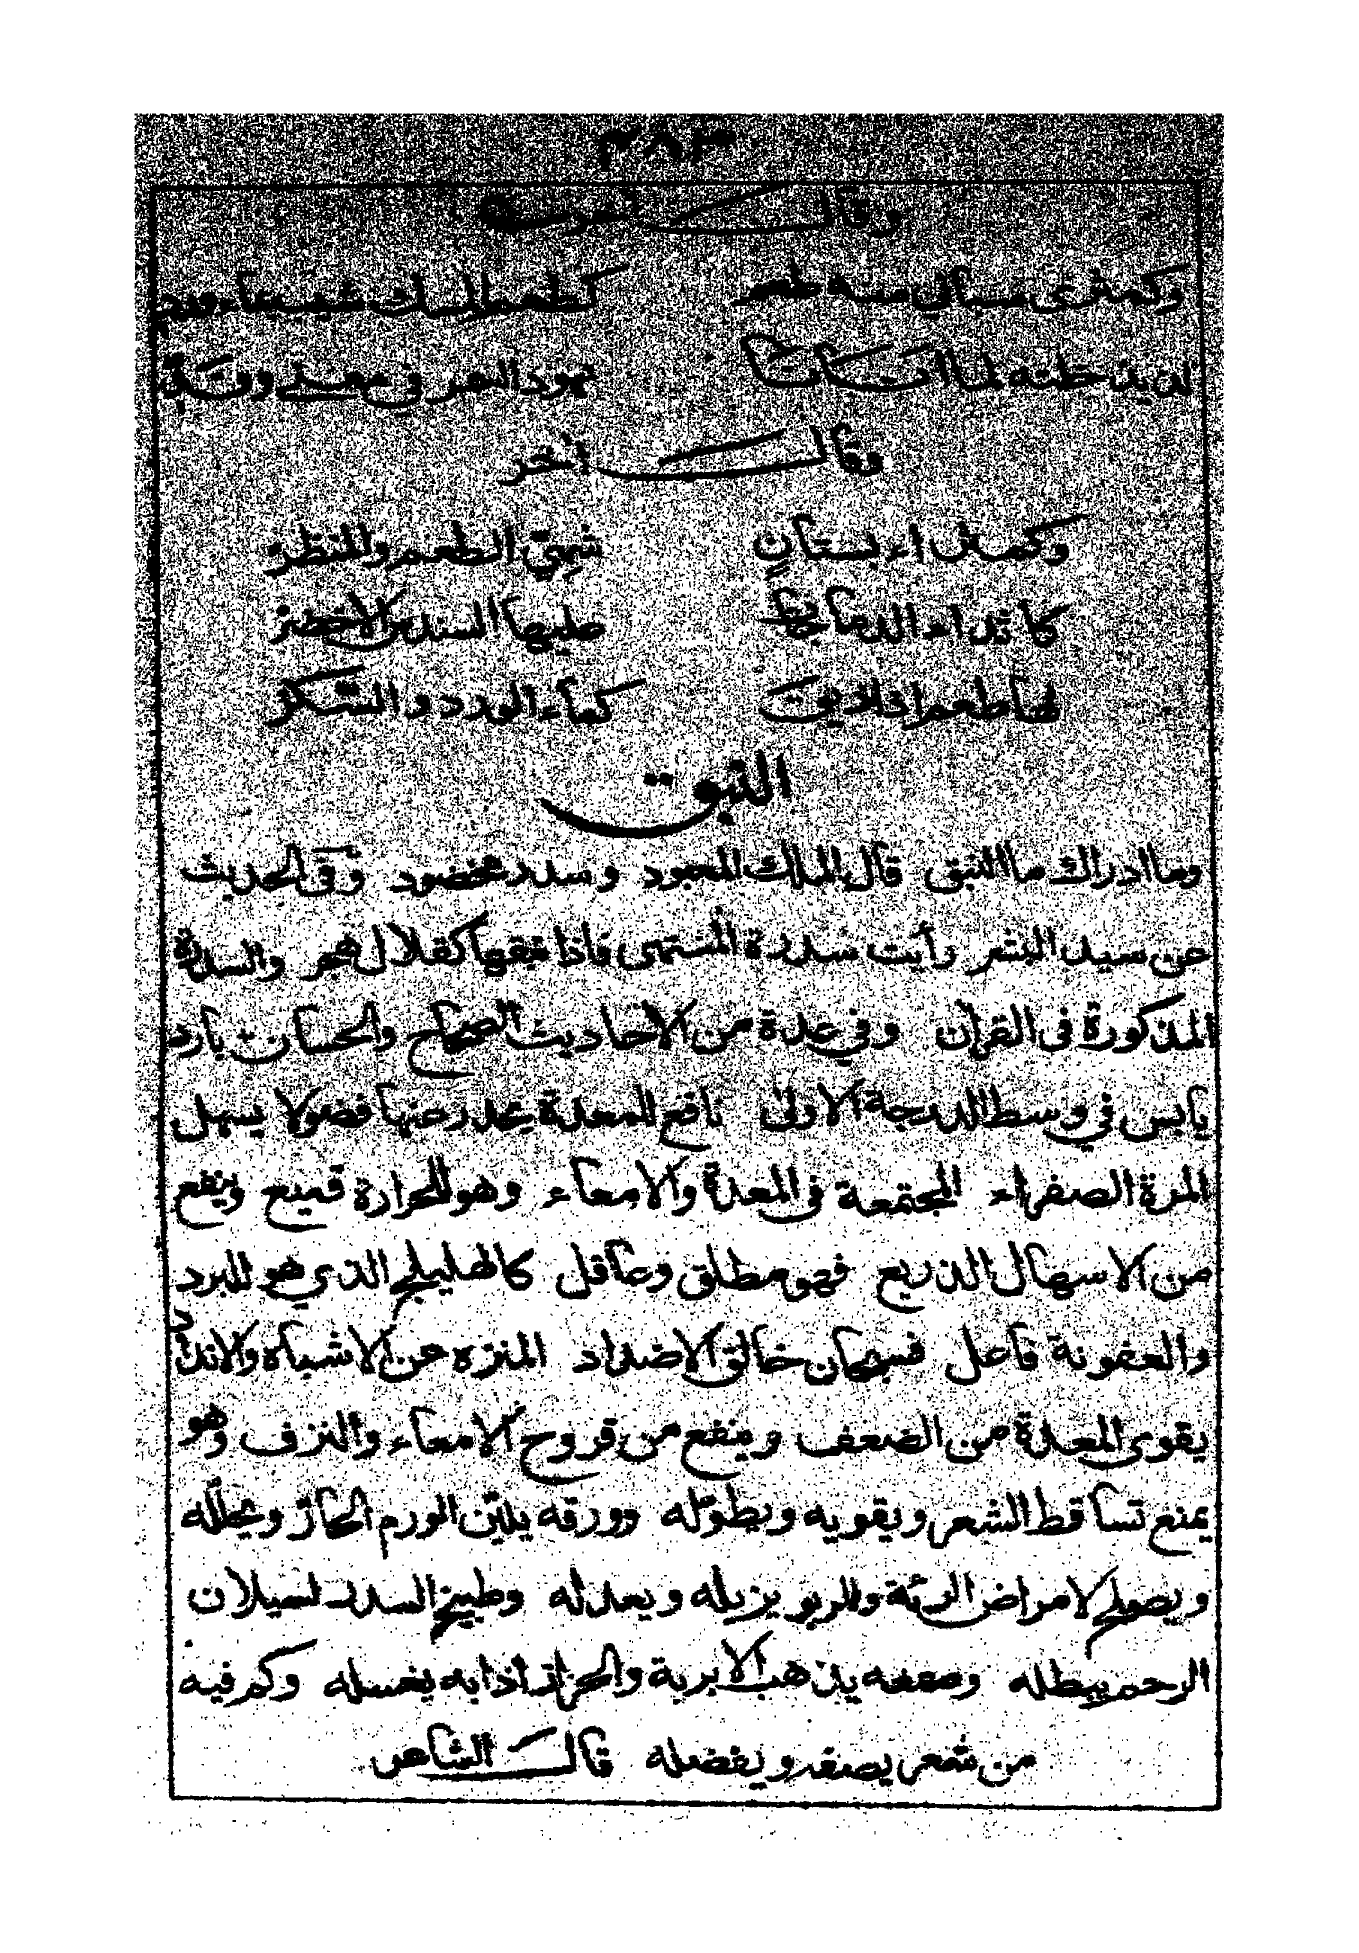 ٣٨٣
وقال
وكمثرى سباني منه طعم كطعم المسك شيب بماء
لذيذ خلته لما أتانا نهود السمر في معنى وقد
وقال آخر
وكمثراء بستان شهي الطعم والمنظر
كأثداء الدمى يغطى عليها السندس الأخضر
لها طعم اذا ذيقت كماء الورد والسكر
النبق
وما ادراك ما النبق قال الملك المعبود وسدر مخضود وفى الحديث
عن سيد البشر رأيت سدرة المنتهى فاذا نبقها كقلال هجر والسدرة
المذكورة فى القران وفى عدة من الاحاديث الصحاح والحسان بارد
يابس فى وسط الدرجة الاولى نافع للمعدة يحدر عنها فضولا يسهل
المرة الصفراء المجتمعة فى المعدة والامعاء وهو للحرارة قميع وينفع
من الاسهال الذريع فهو مطلق وعاقل كالهليلج الذي هو للبرد
والعفونة فاعل فسبحان خالق الاضداد المنزه عن الاشباه والانداد
يقوى المعدة من الضعف وينفع من قروح الامعاء والنزف وهو
يمنع تساقط الشعر ويقويه ويطوله وورقه يلين الورم الحار ويحلله
ويصلح لامراض الرئة وللربو يزيله ويعدله وطبيخ السدر لسيلان
الرحم يبطله وصمغه يذهب الابرية والحزاز اذا به يغسله وكم فيه
من شعر يصفه ويفضله قال الشاعر